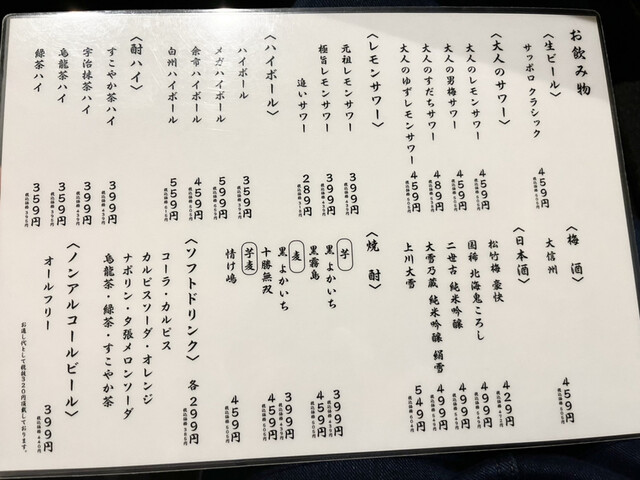 お飲み物
〈生ビール〉
サッポロ クラシック 459円
〈大人のサワー〉
大人のレモンサワー 459円
大人の男梅サワー 459円
大人のすだちサワー 489円
大人のゆずレモンサワー 459円
〈レモンサワー〉
元祖レモンサワー 399円
極旨レモンサワー 399円
追いサワー 289円
〈ハイボール〉
ハイボール 359円
メガハイボール 599円
余市ハイボール 459円
白州ハイボール 559円
〈酎ハイ〉
すこやか茶ハイ 399円
宇治抹茶ハイ 399円
烏龍茶ハイ 359円
緑茶ハイ 359円
〈梅酒〉
大信州 459円
〈日本酒〉
松竹梅 豪快 429円
国稀 北海鬼ころし 499円
二世古 純米吟醸 499円
大雪乃蔵 純米吟醸 絹雪 499円
上川大雪 549円
〈焼酎〉
芋
黒よかいち 399円
黒霧島 459円
麦
黒よかいち 399円
十勝無双 459円
芋麦
情け嶋 459円
〈ソフトドリンク〉 各299円
コーラ・カルピス
カルピスソーダ・オレンジ
ナポリン・夕張メロンソーダ
烏龍茶・緑茶・すこやか茶
〈ノンアルコールビール〉
オールフリー 399円
お通し代りとして税抜320円頂戴しております。